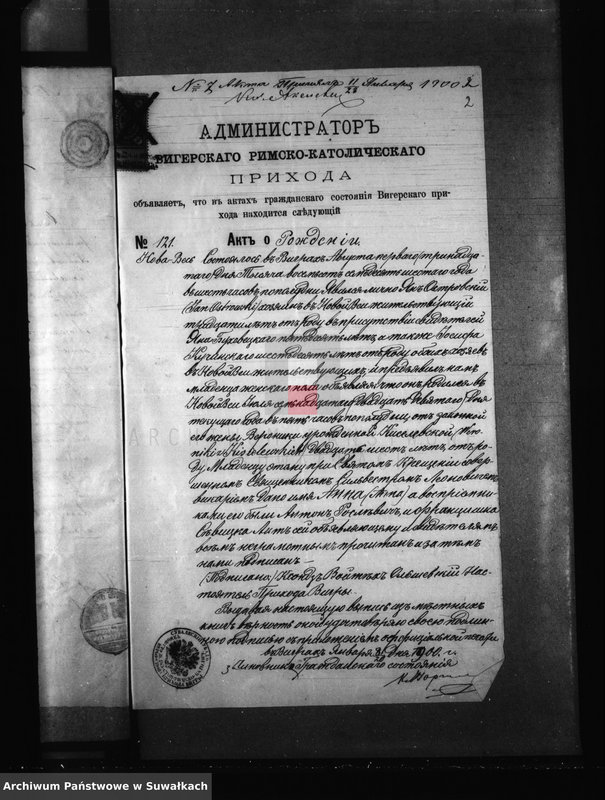 № 7 Акта Принятъ 11/23 Января 1900 г.
2
АДМИНИСТРАТОРЪ
ВИГЕРСКАГО РИМСКО-КАТОЛИЧЕСКАГО
ПРИХОДА
объявляетъ, что въ актахъ гражданскаго состоянія Вигерскаго при-
хода находится слѣдующій
№ 121. Актъ о Рожденіи.
Нова-Весь Состоялось въ Виграхъ Августа перваго/тринадца-
таго/дня Тысяча восемьсотъ семьдесятъ шестаго года
въ шесть часовъ пополудни. Явился лично Янъ Островскій
/Jan Ostrowski/ хозяинъ въ Новой Вси жительствующій
тридцати лѣтъ отъ роду въ присутствіи свидѣтелей
Яна пятидесяти лѣтъ, а также Іосифа
Кучинскаго шестидесяти лѣтъ отъ роду обоихъ хозяевъ
въ Новой Вси жительствующихъ и предъявилъ намъ
младенца женскаго пола объявляя что онъ родился въ
Новой Вси Іюля /двадцать девятаго/ дня
текущаго года въ пять часовъ пополудни, отъ законной
его жены Вероники урожденной Киселевской /Wero-
niki z Kisielewskich/ двадцати шести лѣтъ отъ ро-
ду. Младенцу этому при Святомъ Крещеніи совер-
шенномъ Священникомъ Сильвестромъ
викаріемъ Дано имя Анна /Anna/ а воспріемни-
ками его были Антонъ и Франциска
Актъ сей объявляющему и свидѣтелямъ
всѣмъ неграмотнымъ прочитанъ и затѣмъ
нами подписанъ —
/Подписано/ Ксендзъ Войтехъ Нас-
тоятель Прихода Вигры.
Выдавая настоящую выпись изъ мѣстныхъ
книгъ вѣрность оной удостовѣряю своею подпи-
сью съ приложеніемъ оффиціальной печати
въ Виграхъ Января дня 1900 г.
Чиновникъ Гражданскаго состоянія
Archiwum Państwowe w Suwałkach